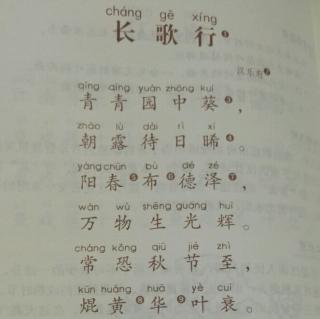 cháng gē xíng
长歌行❶
汉乐府❷
qīng qīng yuán zhōng kuí
青青园中葵❸，
zhāo lù dài rì xī
朝露待日晞❹。
yáng chūn bù dé zé
阳春❺布❻德泽❼，
wàn wù shēng guāng huī
万物生光辉。
cháng kǒng qiū jié zhì
常恐秋节至，
kūn huáng huā yè cuī
焜黄❽华❾叶衰。